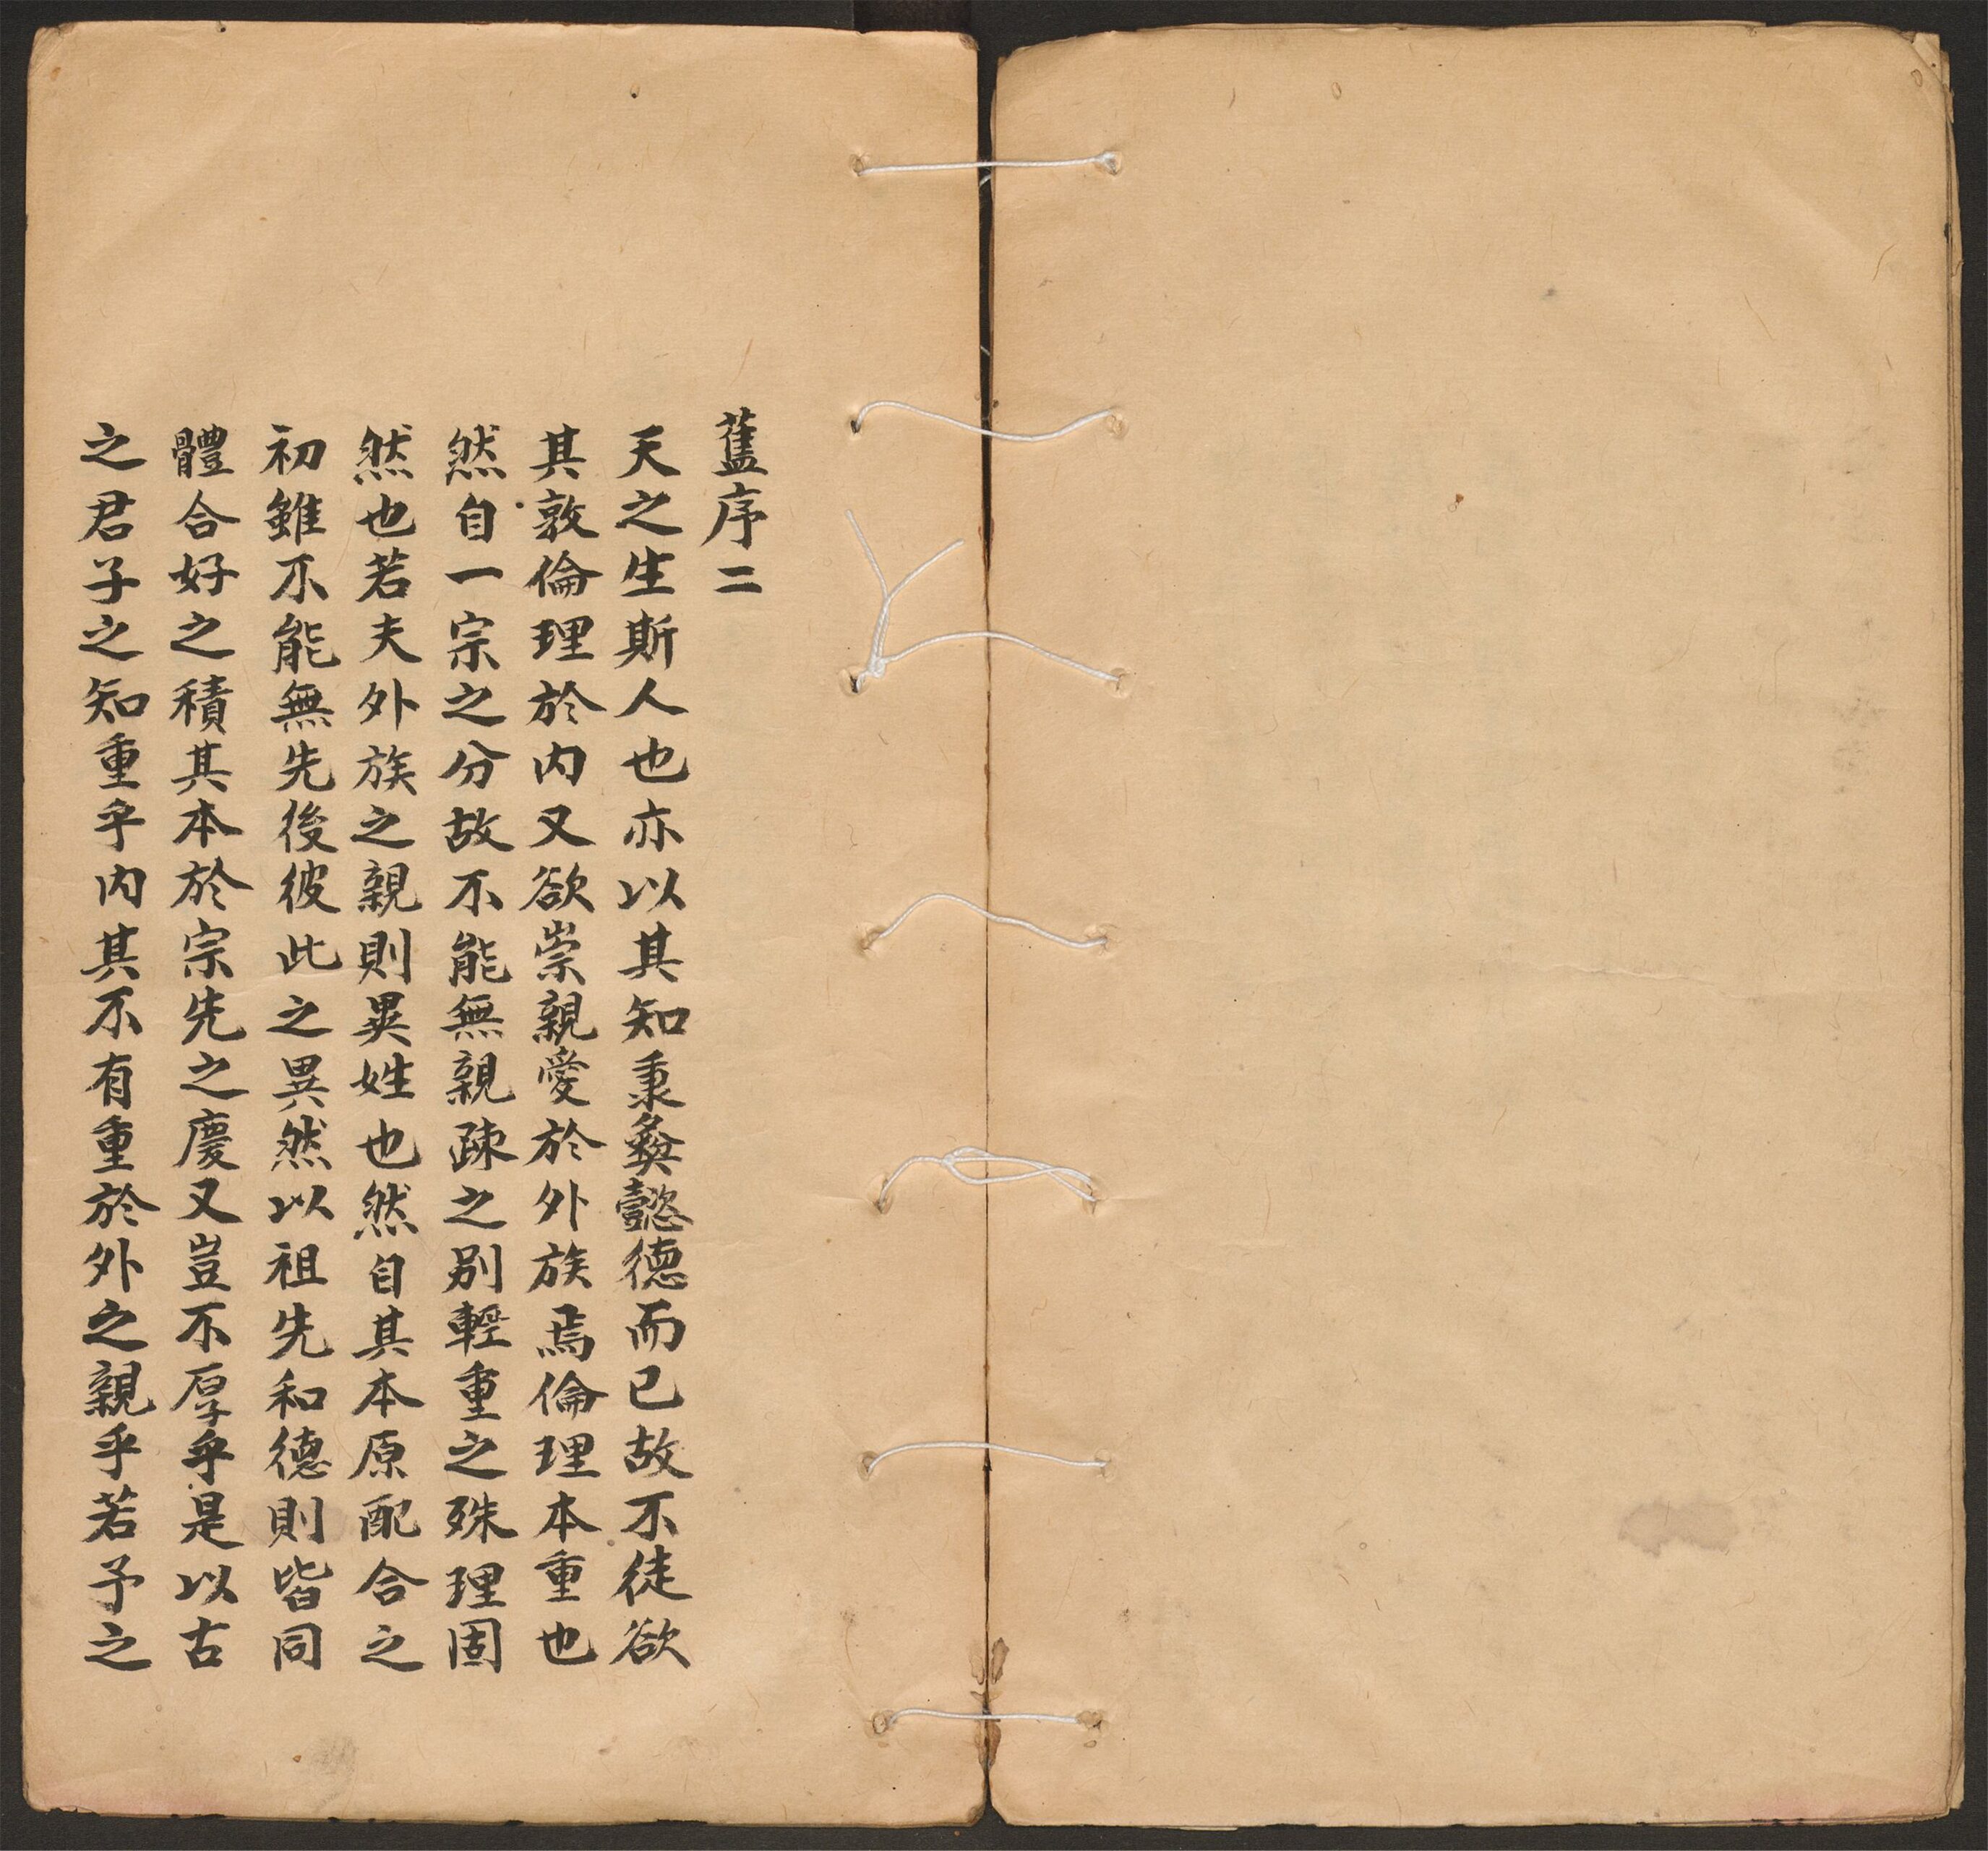 舊序二
天之生斯人也亦以其知秉彛懿德而已故不徒欲
其敦倫理於內又欲崇親愛於外族焉倫理本重也
然自一宗之分故不能無親疎之別輕重之殊理固
然也若夫外族之親則異姓也然自其本原配合之
初雖不能無先後彼此之異然以祖先和德則皆同
體合好之積其本於宗先之慶又豈不厚乎是以古
之君子之知重乎內其不有重於外之親乎若予之